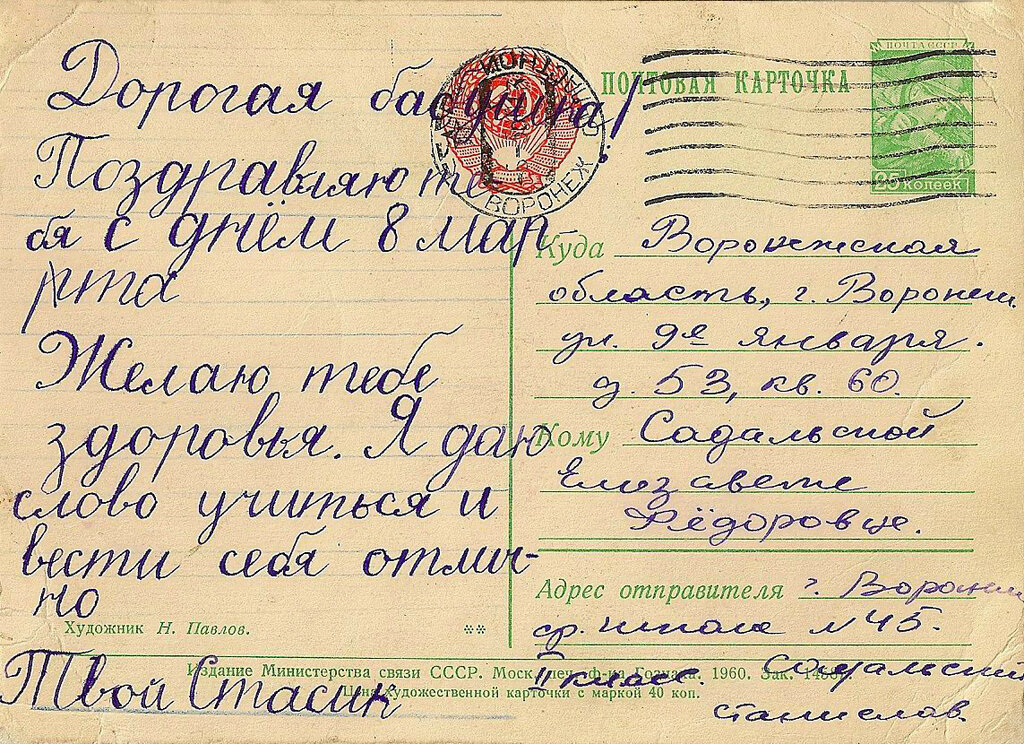 Дорогая бабушка!
Поздравляю те-
бя с днём 8 мар-
рта
Желаю тебе
здоровья. Я даю
слово учиться и
вести себя отлич-
но
Художник Н. Павлов.
**
Твой Стасик
ВОРОНЕЖ
ПОЧТОВАЯ КАРТОЧКА
ПОЧТА СССР
25 копеек
Куда Воронежская
область, г. Воронеж.
ул. 9е января.
д. 53, кв. 60.
Кому Садальской
Елизавете
Фёдоровне.
Адрес отправителя г. Воронеж
ср. школа N 45.
II класс. Садальский
Станислав.
Издание Министерства связи СССР. Моск. печ. ф-ка Гознака. 1960. Зак.
Цена художественной карточки с маркой 40 коп.